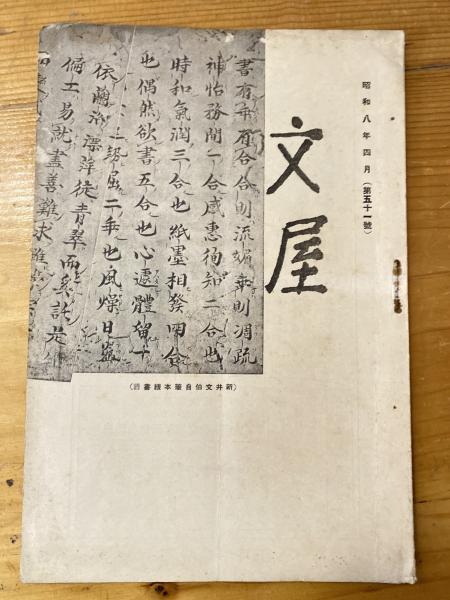 昭和八年四月(第五十一號)
文屋
書有乖有合合則流媚乖則凋疏
神怡務閑一合感惠徇知二合也
時和氣潤三合也紙墨相發四合
也偶然欲書五合也心遽體留
勢屈二乖也風燥日炎
漂萍徒青翠而
偏工易就盡善難求
(新井文伯自筆本書譜)